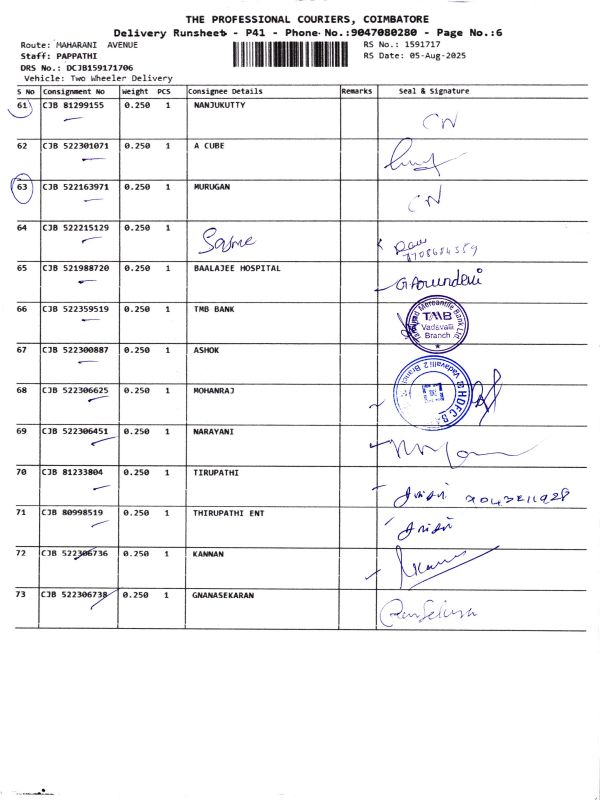 THE PROFESSIONAL COURIERS, COIMBATORE
Delivery Runsheet - P41 - Phone No.:9047080280 - Page No.:6
Route: MAHARANI AVENUE RS No.: 1591717
Staff: PAPPATHI RS Date: 05-Aug-2025
DRS No.: DCJB159171706
Vehicle: Two Wheeler Delivery
S No Consignment No Weight PCS Consignee Details Remarks Seal & Signature
61 CJB 81299155 0.250 1 NANJUKUTTY
CN
62 CJB 522301071 0.250 1 A CUBE
63 CJB 522163971 0.250 1 MURUGAN
CN
64 CJB 522215129 0.250 1
Same
65 CJB 521988720 0.250 1 BAALAJEE HOSPITAL
66 CJB 522359519 0.250 1 TMB BANK
TMB
Vadavalli
Branch
67 CJB 522300887 0.250 1 ASHOK
68 CJB 522306625 0.250 1 MOHANRAJ
69 CJB 522306451 0.250 1 NARAYANI
70 CJB 81233804 0.250 1 TIRUPATHI
71 CJB 80998519 0.250 1 THIRUPATHI ENT
72 CJB 522306736 0.250 1 KANNAN
73 CJB 522306738 0.250 1 GNANASEKARAN